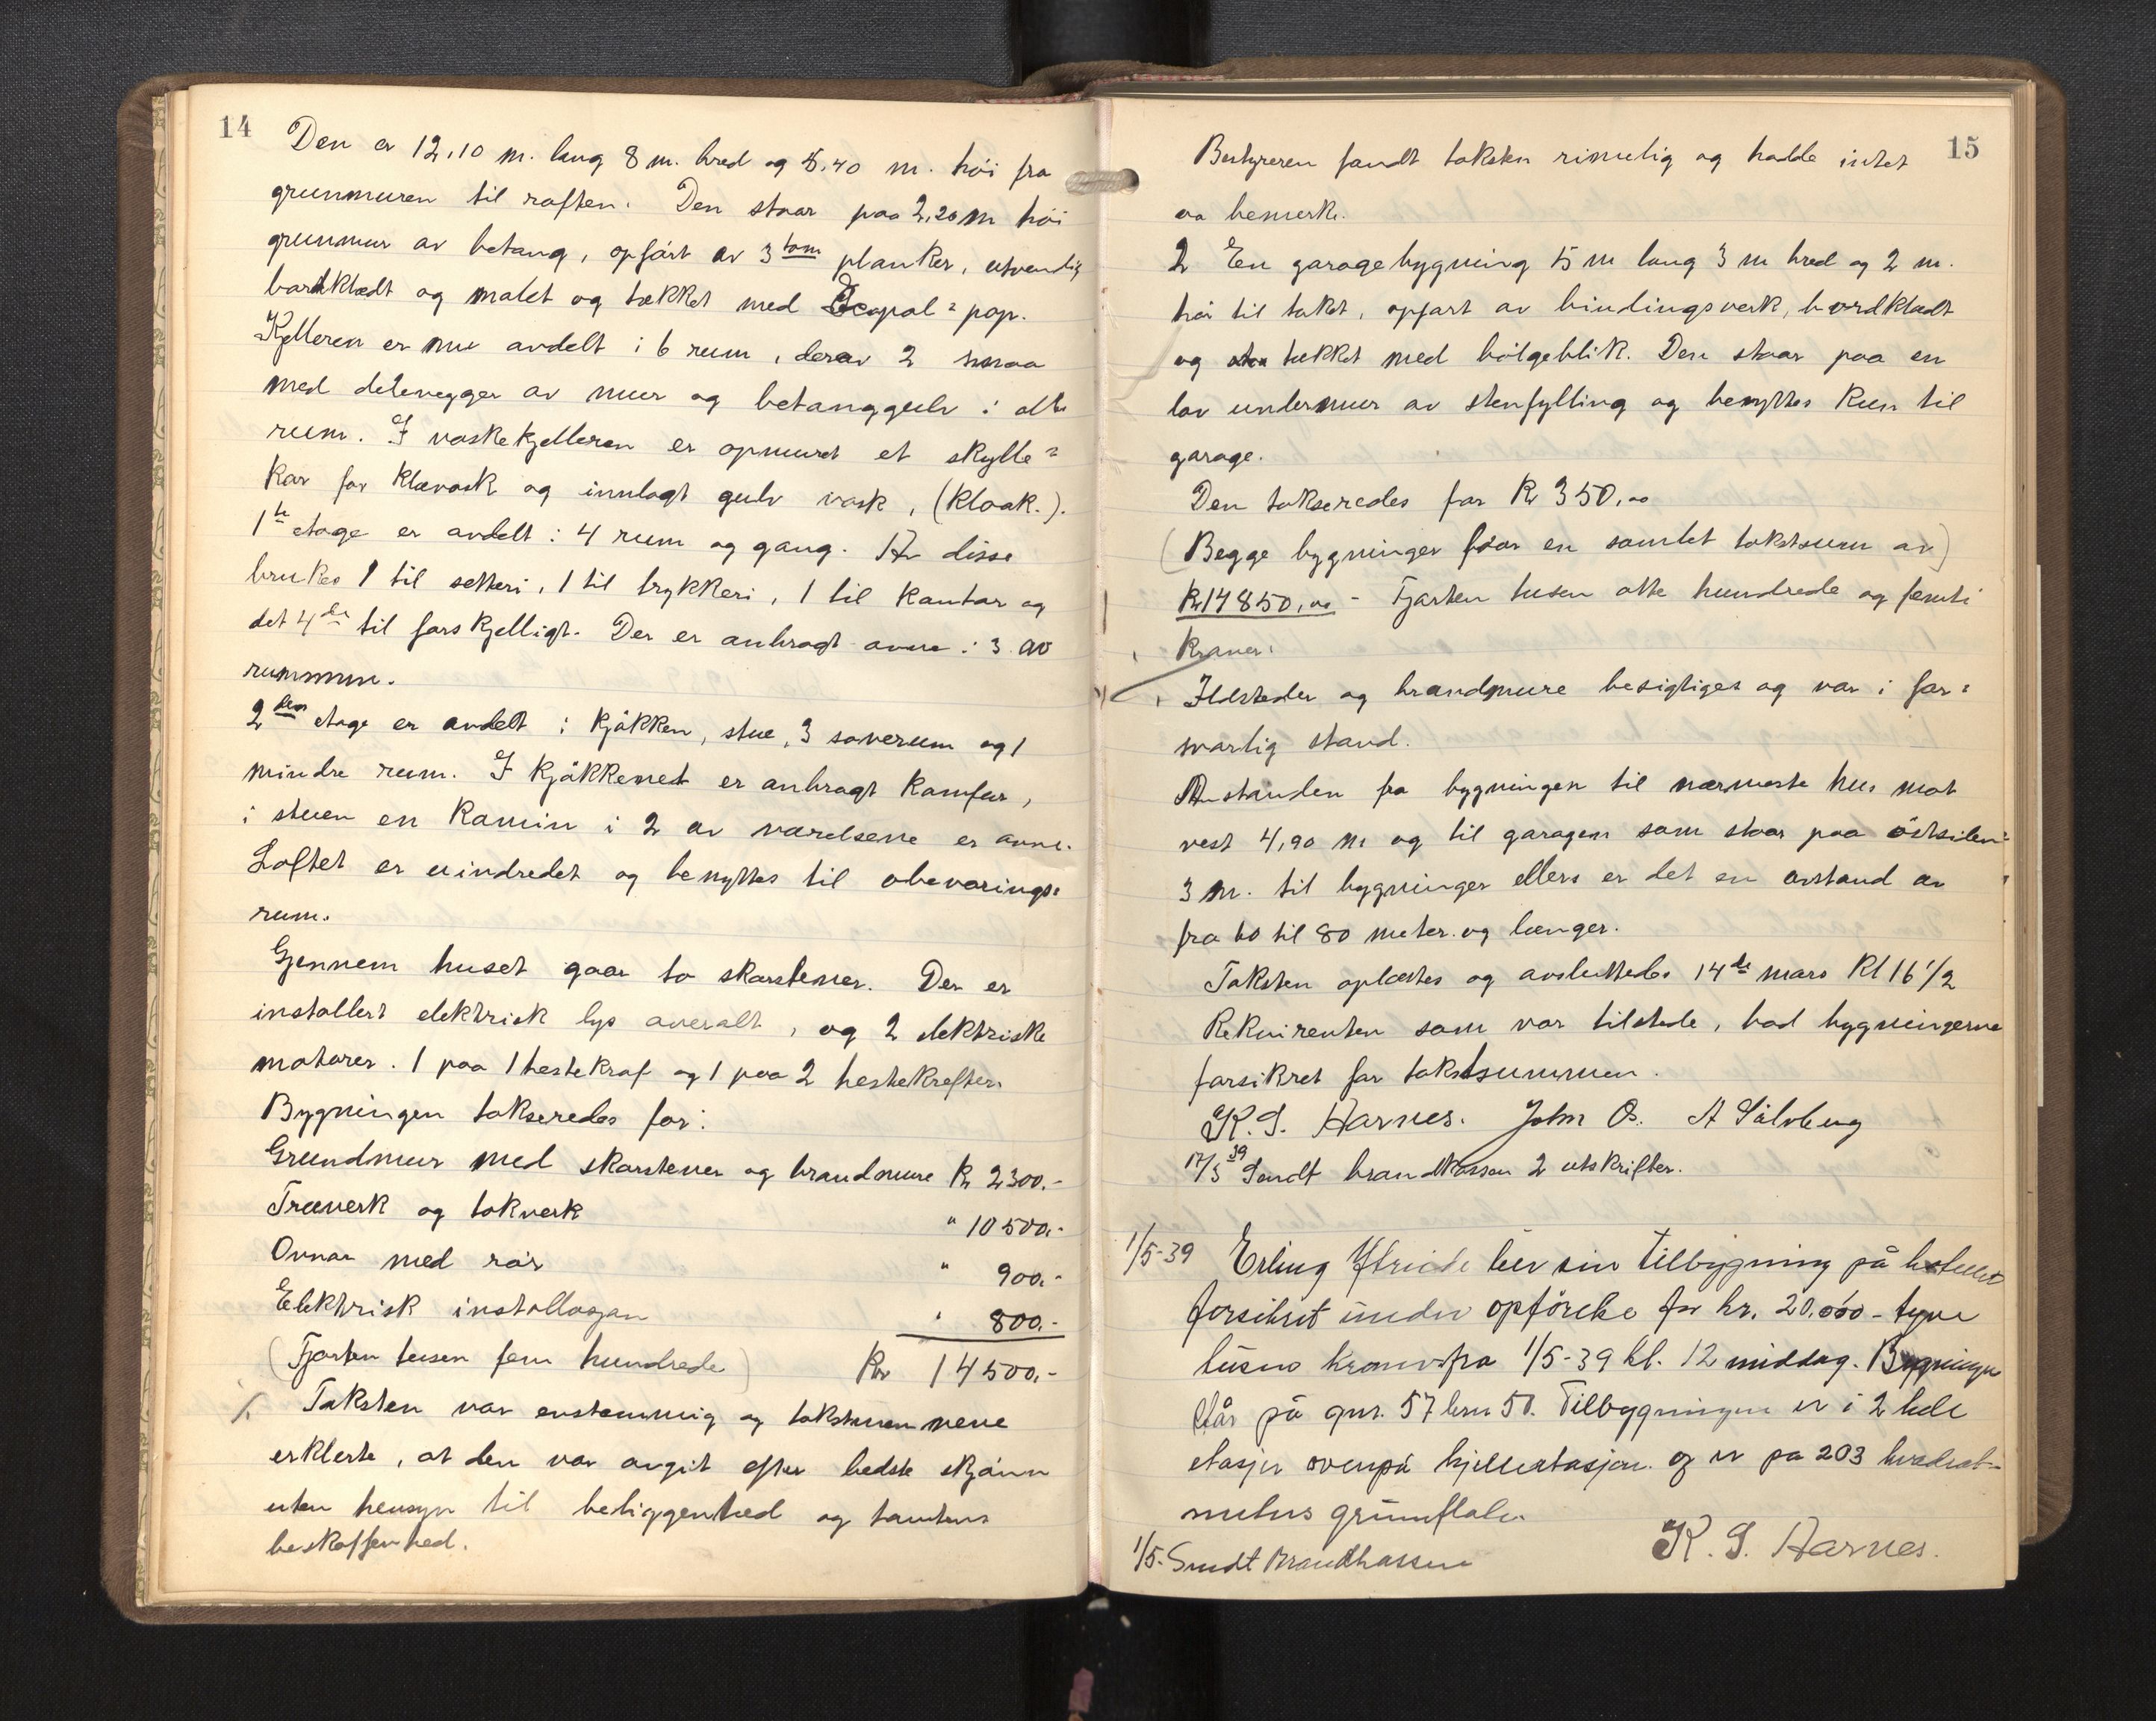 14
Den er 12,10 m. lang 8 m. bred og 5,40 m. høi fra
grunmuren til raften. Den staar paa 2,20 m høi
grunmur av betang, opført av 3 tom planker, utvendig
bordklædt og malet og tækket med Icopal = pap.
Kjelleren er nu avdelt i 6 rum, derav 2 smaa
med delevegger av mur og betanggulv i alle
rum. I vaskekjelleren er opmuret et skylle=
kar for klævask og innlagt gulv vask, (kloak.).
1ste etage er avdelt i 4 rum og gang. Av disse
brukes 1 til setteri, 1 til trykkeri, 1 til kantor og
det 4de til forskjelligt. Der er anbragt ovne i 3 av
rummene.
2den etage er avdelt i kjøkken, stue, 3 soverum og 1
mindre rum. I kjøkkenet er anbragt komfur,
i stuen en kamin i 2 av værelsene er ovne.
Loftet er uindredet og benyttes til obevarings=
rum.
Gjennem huset gaar to skorstener. Der er
installert elektrisk lys overalt, og 2 elektriske
motorer. 1 paa 1 hestekraf og 1 paa 2 hestekrefter.
Bygningen takseredes for:
Grundmur med skorstener og brandmure Kr 2300.-
Træverk og takverk " 10500.-
Ovnar med rør " 900.-
Elektrisk installasjon " 800.-
(Fjorten tusen fem hundrede) Kr 14500.-
Taksten var enstemmig og takstmennene
erklerte, at den var avgit efter bedste skjønn
uten hensyn til beliggenhed og tomtens
beskaffenhed.
15
Bestyreren fandt taksten rimelig og hadde intet
aa bemerke.
2 En garagebygning 5 m lang 3 m bred og 2 m.
høi til taket, opført av bindingsverk, bordklædt
og tækket med bølgeblik. Den staar paa en
lav undermur av stenfylling og benyttes kun til
garage.
Den takseredes for Kr 350,00
(Begge bygninger faar en samlet takstsum av)
Kr 14850,00 - Fjorten tusen otte hundrede og femti
kroner.
Ildsteder og brandmure besigtiges og var i for=
svarlig stand.
Avstanden fra bygningen til nærmeste hus mot
vest 4,90 m og til garagen som staar paa østsiden
3 m. til bygninger ellers er det en avstand av
fra 60 til 80 meter og længer.
Taksten oplæstes og avsluttedes 14de mars Kl 16 1/2
Rekvirenten som var tilstede, bad bygningerne
forsikret for takstsummen.
K. S. Harnes. John O. A Sålvberg
17/3 39 Sendt brandkassen 2 utskrifter.
1/5-39 Erling blev sin tilbygning på hotellet
forsikret under opförelse for kr. 20.000 - tyve
tusen kroner fra 1/5-39 kl. 12 middag. Bygningen
står på gnr. 57 bnr 50. Tilbygningen er i 2 hele
etasjer ovenpå kjelleretasjen og er på 203 kvadrat-
meters grunnflate.
K. S. Harnes.
1/5- Sendt Brandkassen